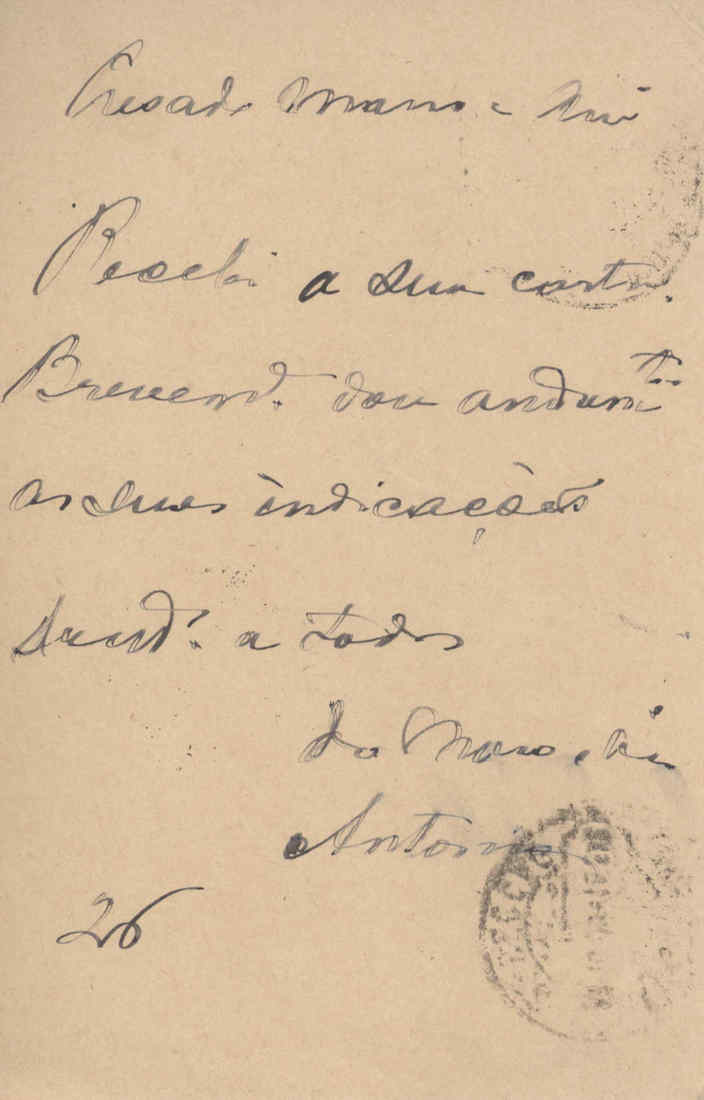 Presado Mano e Ami
Recebi a sua carta.
Brevemd.e dou andamto
as suas indicações
Saud.s a todos
do Mano e Am
Antonio
26
SECÇÃO